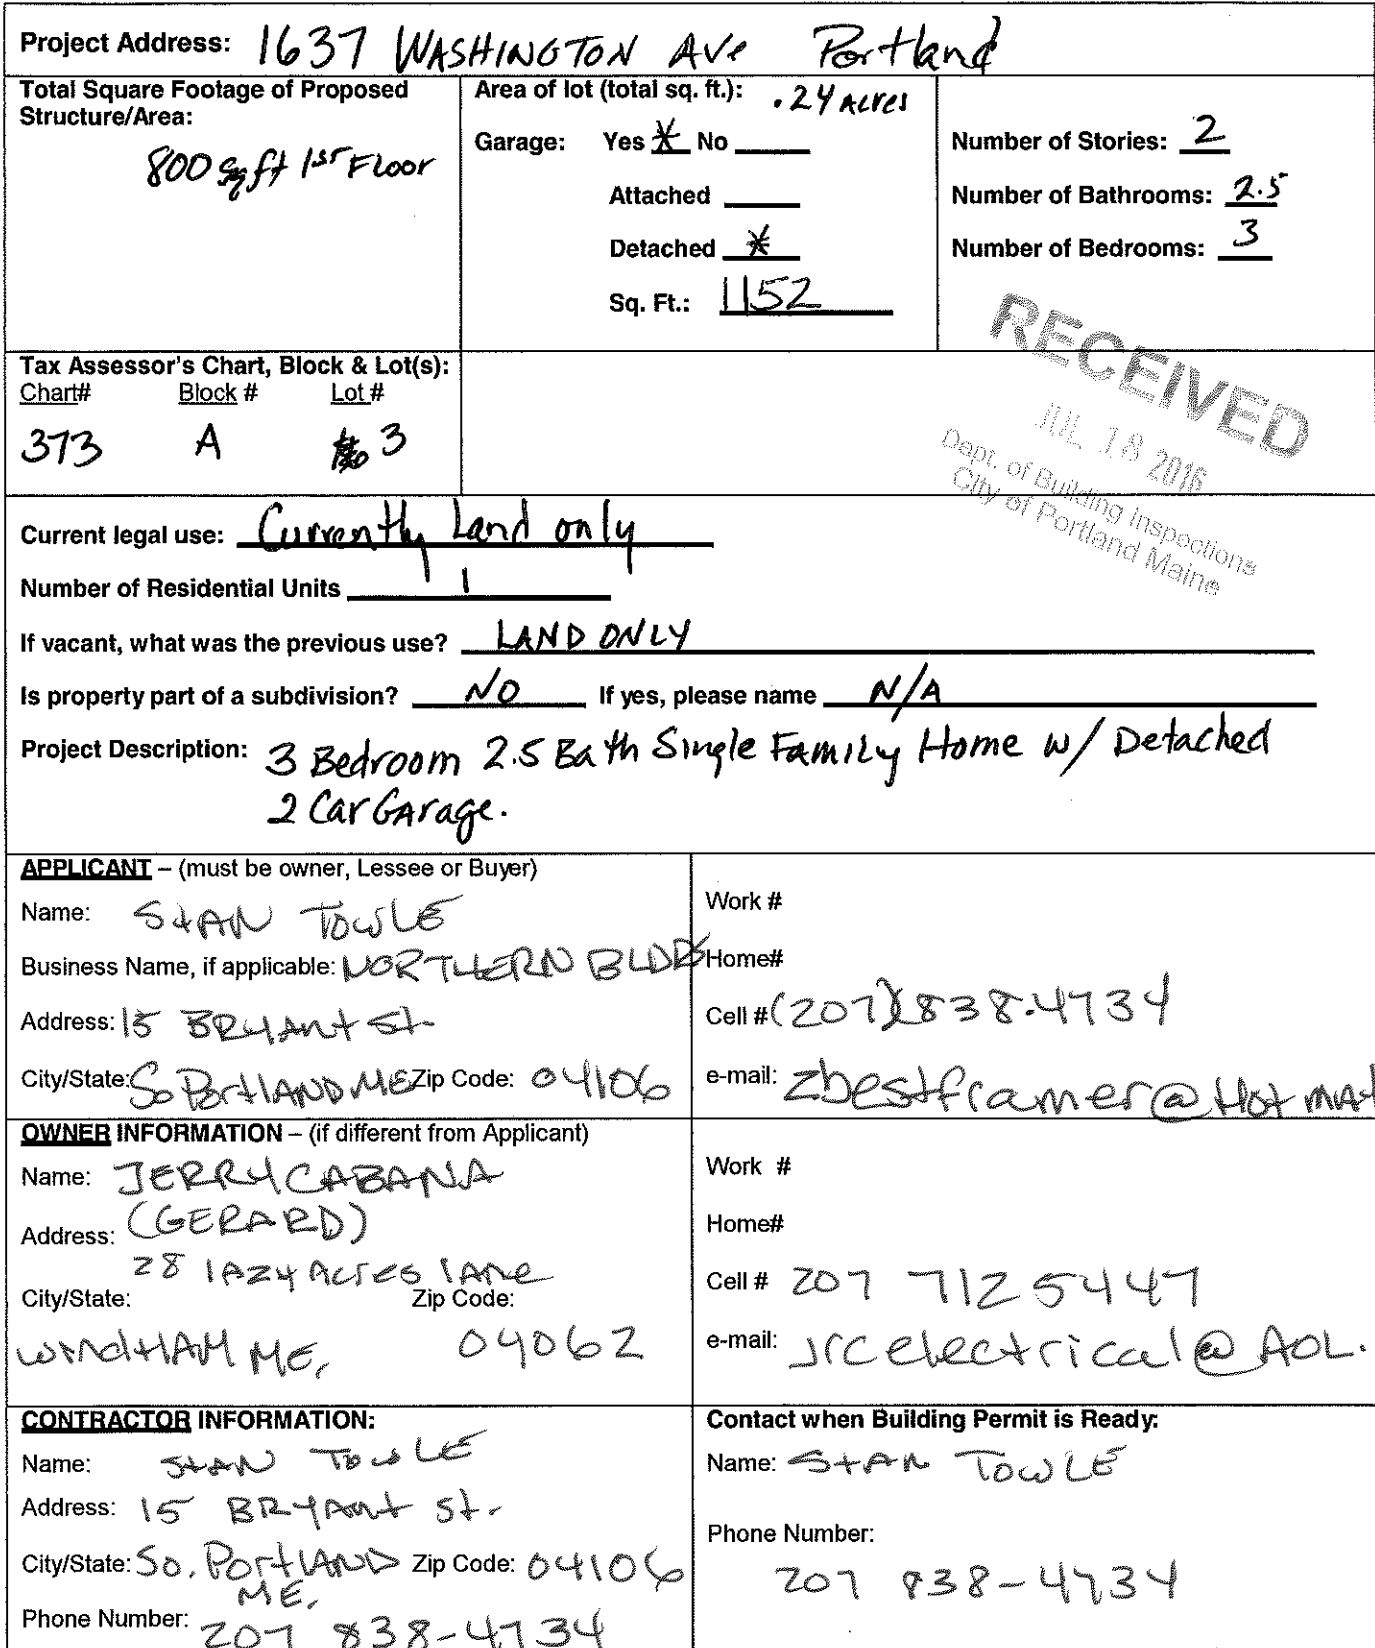 Project Address: 1637 WASHINGTON AVe Portland
Total Square Footage of Proposed
Structure/Area:
800 Sq ft 1ST FLoor
Area of lot (total sq. ft.): .24 Acres
Garage: Yes * No
Attached
Detached *
Sq. Ft.: 1152
Number of Stories: 2
Number of Bathrooms: 2.5
Number of Bedrooms: 3
Tax Assessor's Chart, Block & Lot(s):
Chart# Block # Lot #
373 A 3
RECEIVED
JUL 18 2016
Dept. of Building Inspections
City of Portland Maine
Current legal use: Currently Land only
Number of Residential Units 1
If vacant, what was the previous use? LAND ONLY
Is property part of a subdivision? NO If yes, please name N/A
Project Description: 3 Bedroom 2.5 Bath Single Family Home w/ Detached
2 Car GArage.
APPLICANT – (must be owner, Lessee or Buyer)
Name: StAN TOWLE
Business Name, if applicable: NORTHERN BLDRS
Address: 15 BRYAnt St.
City/State: So PortlAND ME Zip Code: 04106
Work #
Home#
Cell # (207) 838-4734
e-mail: zbestframer@Hotmai
OWNER INFORMATION – (if different from Applicant)
Name: JERRY CABANA
(GERARD)
Address:
28 lAzy Acres lAne
City/State: Zip Code:
windHAM ME, 04062
Work #
Home#
Cell # 207 712 5447
e-mail: jrcelectrical@AOL.
CONTRACTOR INFORMATION:
Name: StAN TOWLE
Address: 15 BRYAnt St.
City/State: So. PortlAND Zip Code: 04106
ME,
Phone Number: 207 838-4734
Contact when Building Permit is Ready:
Name: StAn TOWLE
Phone Number:
207 838-4734